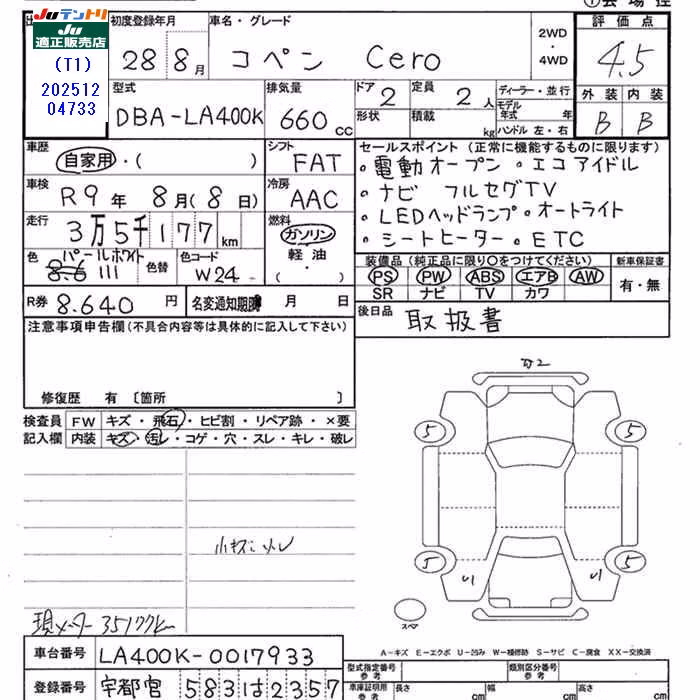 JUテントリ
JU適正販売店
(T1)
202512
04733
初度登録年月
28 8月
車名・グレード
コペン Cero
2WD
・
4WD
評価点
4.5
外装 内装
B B
型式
DBA-LA400K
排気量
660 cc
ドア
2
定員
2人
形状
積載 kg
ディーラー・並行
モデル年式 年
ハンドル 左・右
車歴
自家用・( )
シフト
FAT
車検
R9年 8月(8日)
冷房
AAC
走行
3万5千177km
燃料
ガソリン
軽油
・( )
色
パールホワイト
8-6 111
色替
色コード
W24
R券
8.640円
名変通知期限 月 日
セールスポイント (正常に機能するものに限ります)
・電動オープン ・エコアイドル
・ナビ フルセグTV
・LEDヘッドランプ ・オートライト
・シートヒーター ・ETC
装備品 (純正品に限り○をつけてください)
PS PW ABS エアB AW
SR ナビ TV カワ
新車保証書
有・無
後日品
取扱書
注意事項申告欄(不具合内容等は具体的に記入して下さい)
修復歴 有 〔箇所 〕
検査員
記入欄
FW キズ・飛石・ヒビ割・リペア跡・×要
内装 キズ・汚レ・コゲ・穴・スレ・キレ・破レ
小キズ
現メーター35177K
5 5
5 5
スペア
A-キズ E-エクボ U-凹み W-補修跡 S-サビ C-腐食 XX-交換済
車台番号
LA400K-0017933
登録番号
宇都宮 583 は 2357
型式指定番号
参考
類別区分番号
参考
車庫証明用
参考
長さ cm
幅 cm
高さ cm